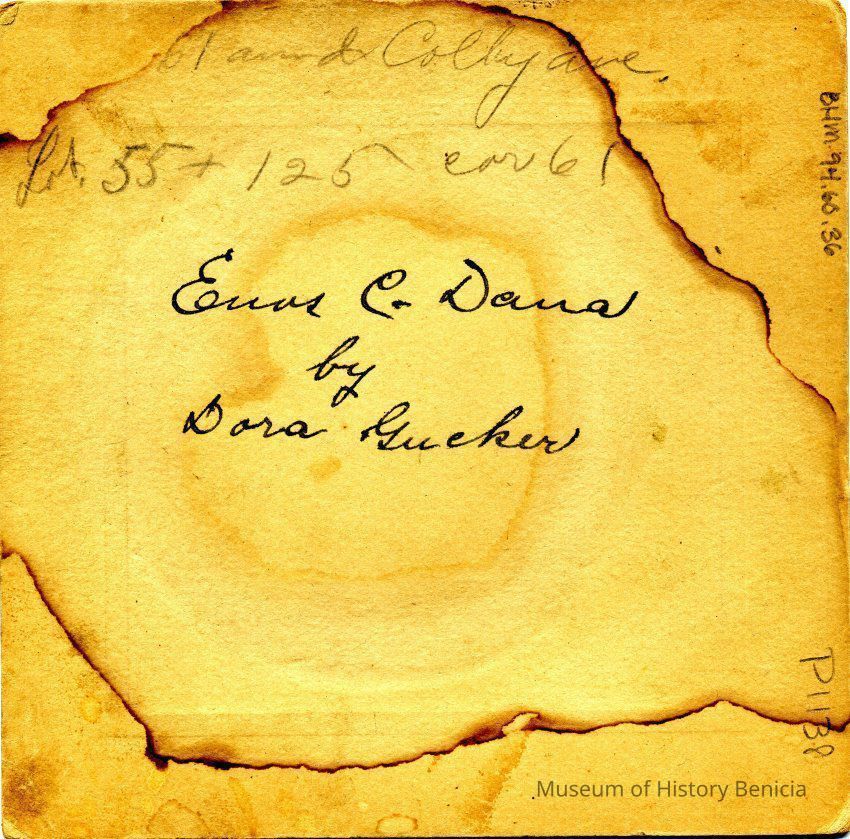 61 and Colby ave.
Lot. 55 + 125 cor 61
Enos C. Dana
by
Dora Gucker
BHM.94.60.36
P1138
Museum of History Benicia